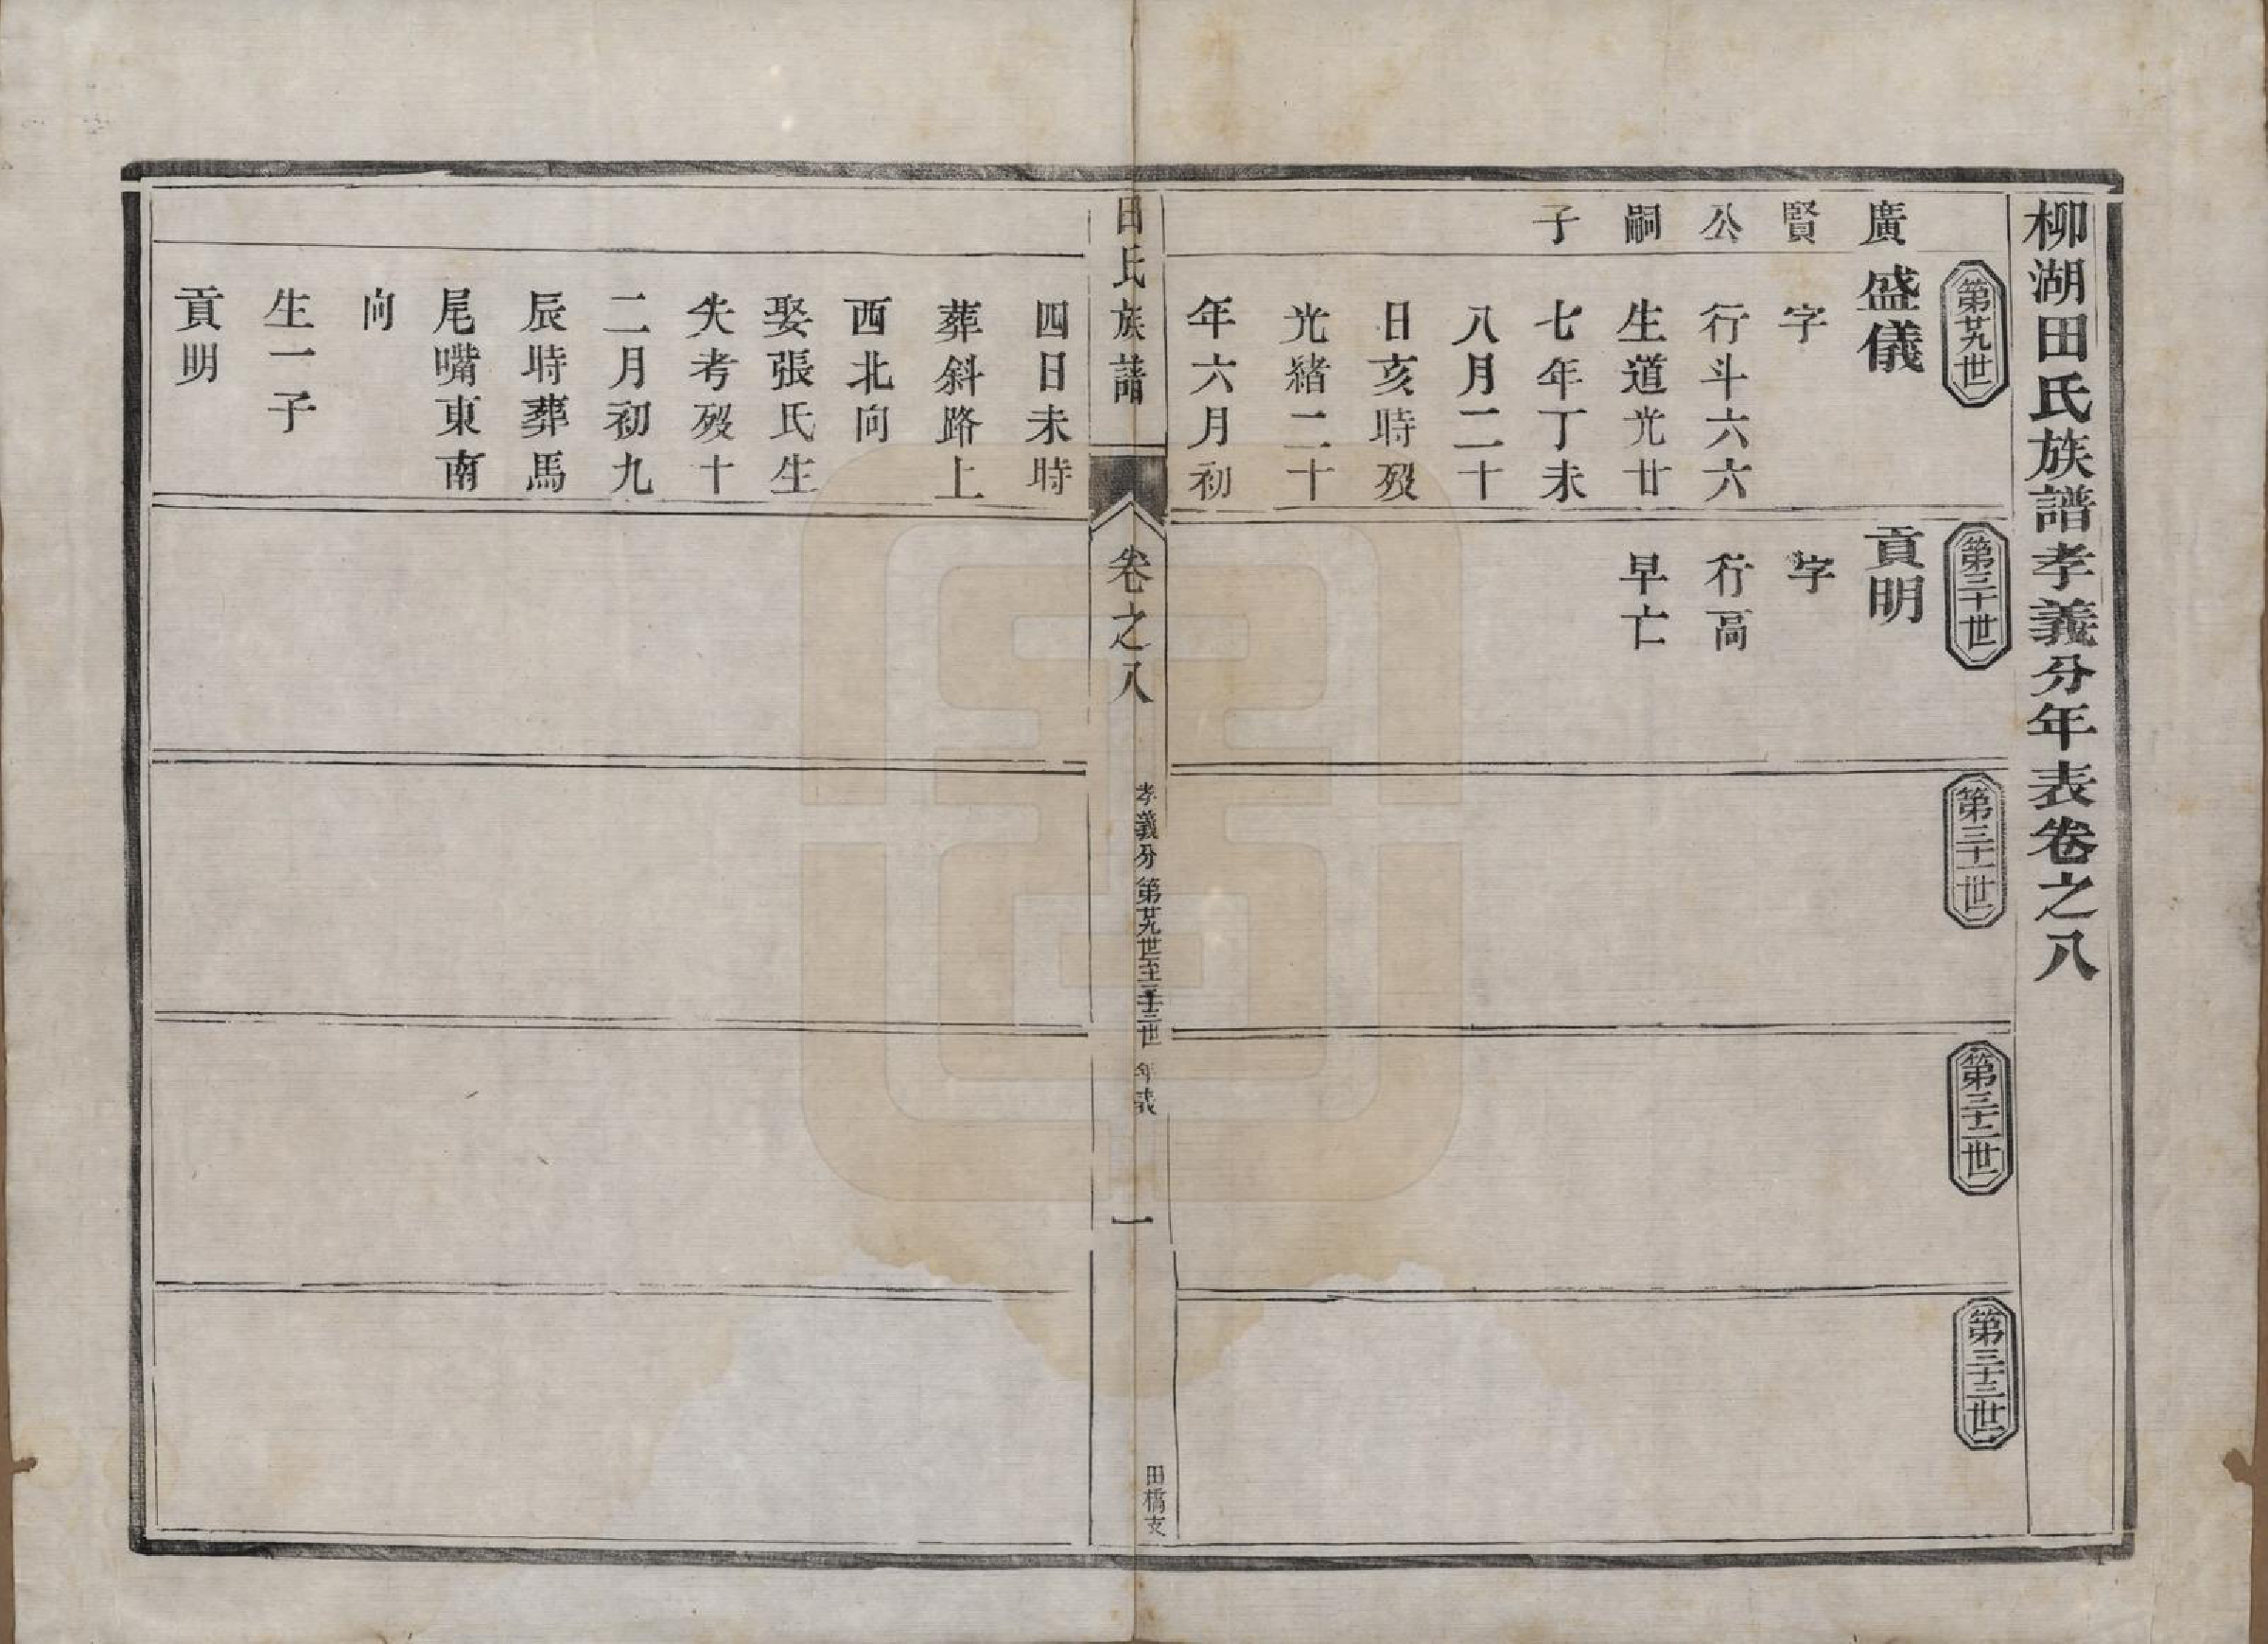 柳湖田氏族譜孝義分年表卷之八
第廿九世
廣
賢
公
嗣
子
盛儀
字
行斗六六
生道光廿
七年丁未
八月二十
日亥時歿
光緒二十
年六月初
四日未時
葬斜路上
西北向
娶張氏生
失考歿十
二月初九
辰時葬馬
尾嘴東南
向
生一子
貢明
第三十世
貢明
字
行高
早亡
第三十一世
第三十二世
第三十三世
田氏族譜
卷之八
孝義分 第廿九世至三十三世 年表
一
田橋支